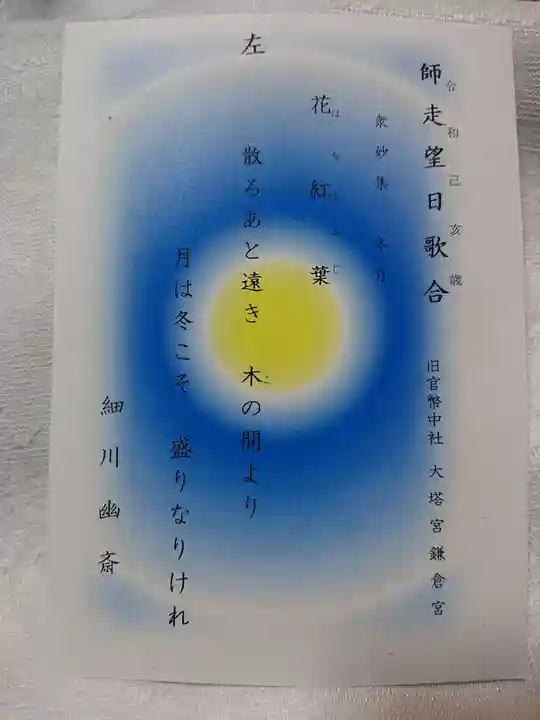 師走望日歌合
令和己亥歳
旧官幣中社 大塔宮鎌倉宮
衆妙集 冬月
花紅葉
はなもみじ
左
散るあと遠き 木の間より
こ
月は冬こそ 盛りなりけれ
細川幽斎